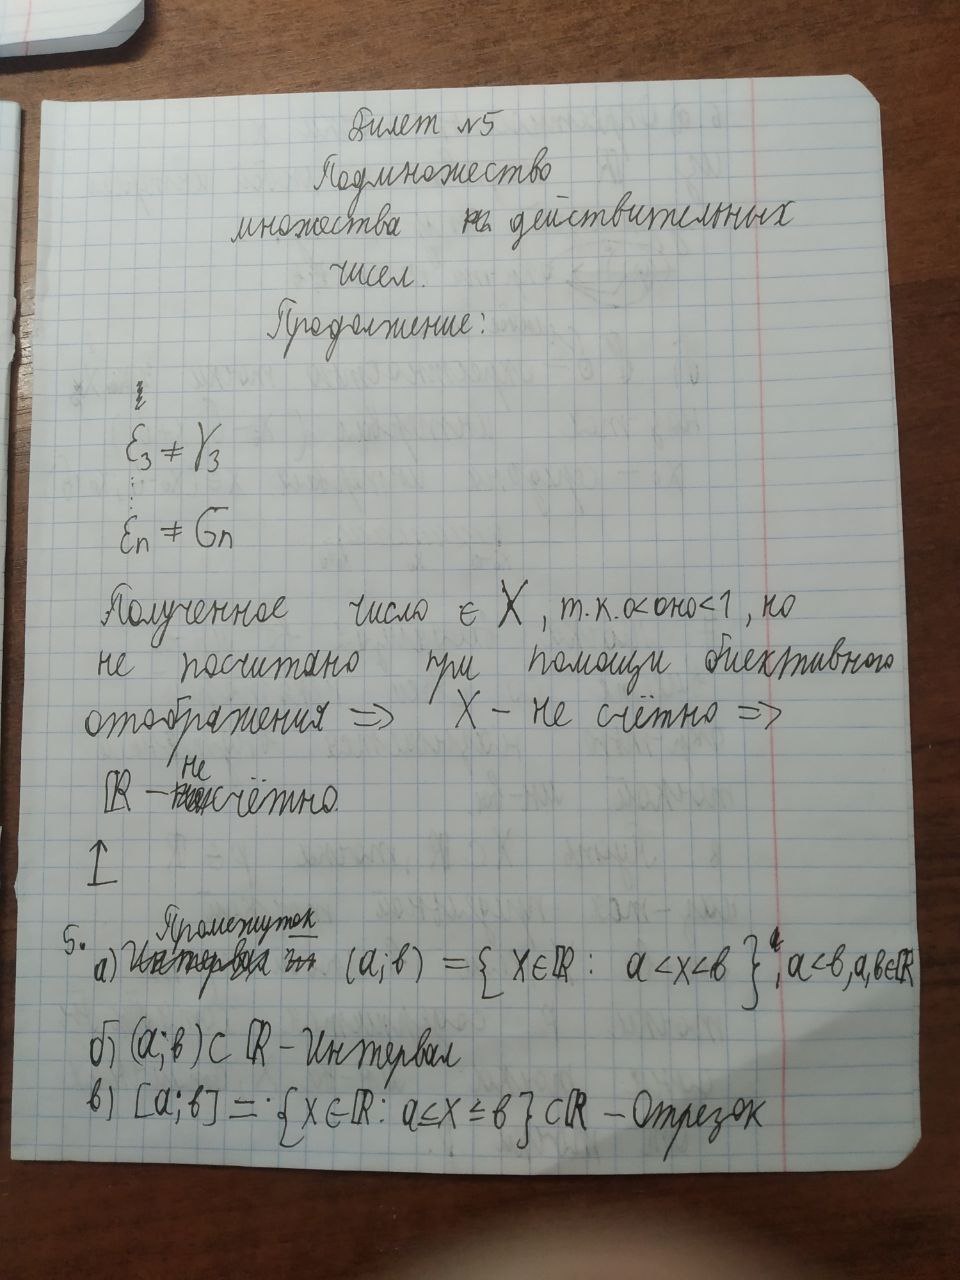 Билет №5
Подмножество
множества действительных
чисел.
Продолжение:
ε₃ ≠ γ₃
εn ≠ σn
Полученное число ∈ X, т.к. 0<оно<1, но
не посчитано при помощи биективного
отображения => X – не счётно =>
ℝ – не счётно.
5. а) Промежуток (a;в) = { x∈ℝ: a<x<в }, a<в, a,в∈ℝ
б) (a;в)⊂ ℝ – Интервал
в) [a;в] = {x∈ℝ: a≤x≤в}⊂ℝ – Отрезок